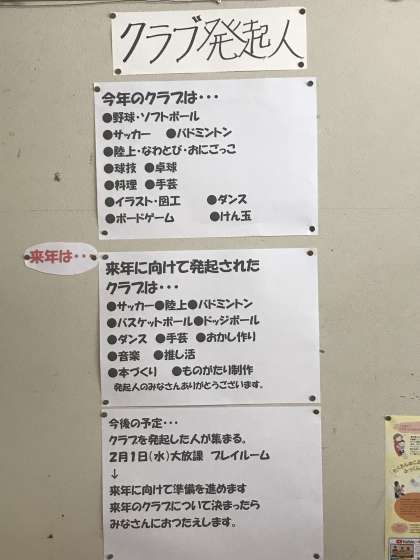 クラブ発起人
今年のクラブは・・・
●野球・ソフトボール
●サッカー ●バドミントン
●陸上・なわとび・おにごっこ
●球技 ●卓球
●料理 ●手芸
●イラスト・図工 ●ダンス
●ボードゲーム ●けん玉
来年は・・・
来年に向けて発起された
クラブは・・・
●サッカー●陸上●バドミントン
●バスケットボール●ドッジボール
●ダンス ●手芸 ●おかし作り
●音楽 ●推し活
●本づくり ●ものがたり制作
発起人のみなさんありがとうございます。
今後の予定・・・
クラブを発起した人が集まる。
2月1日(水)大放課 プレイルーム
↓
来年に向けて準備を進めます
来年のクラブについて決まったら
みなさんにおつたえします。